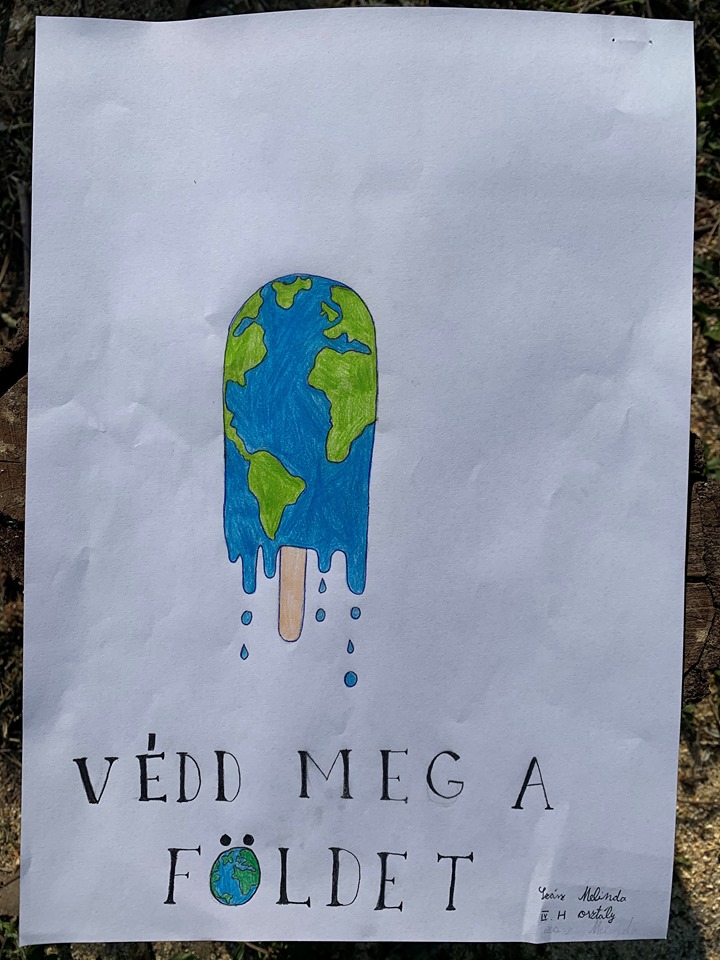 VÉDD MEG A
FÖLDET
Melinda
IV. H osztály